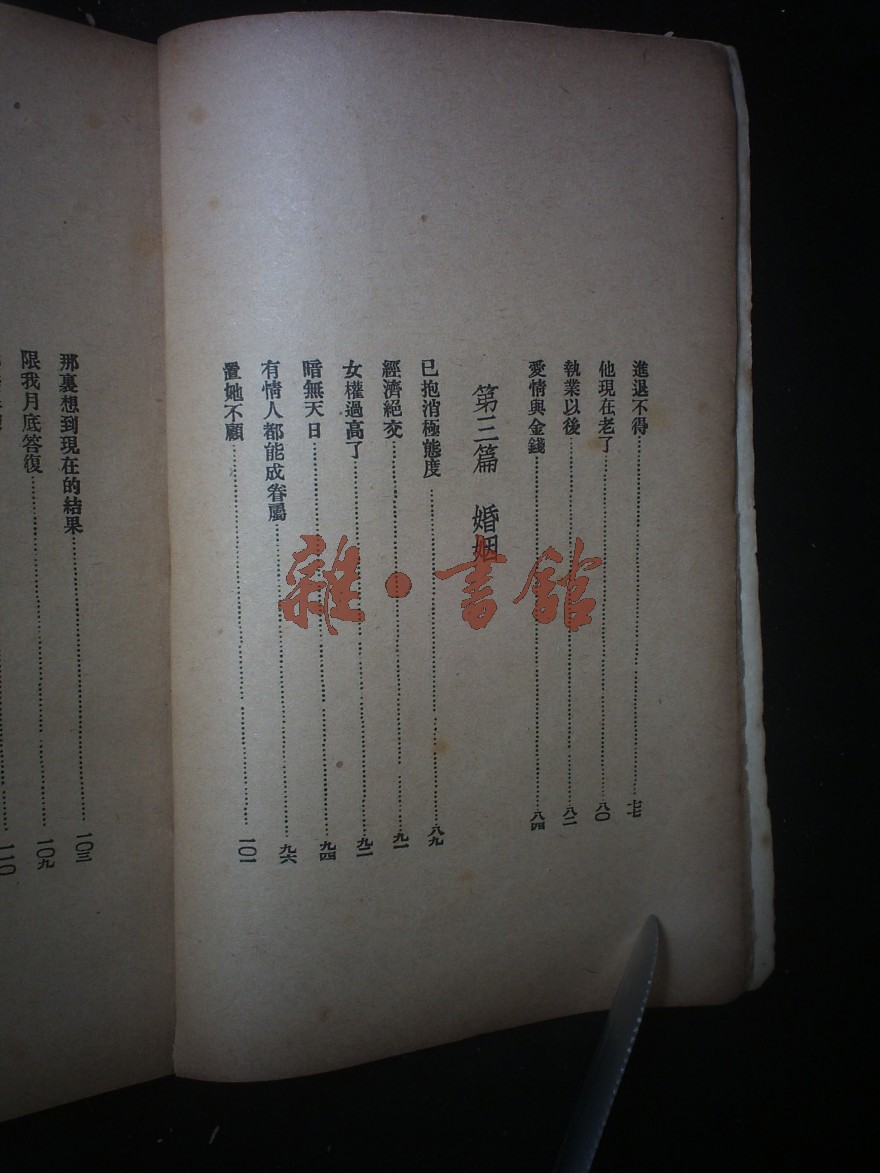 進退不得……七七
他現在老了……八〇
執業以後……八二
愛情與金錢……八四
第三篇　婚姻
已抱消極態度……八九
經濟絕交……九一
女權過高了……九二
暗無天日……九四
有情人都能成眷屬……九六
置她不顧……一〇一
那裏想到現在的結果……一〇三
限我月底答復……一〇九
一一〇
雜·書館